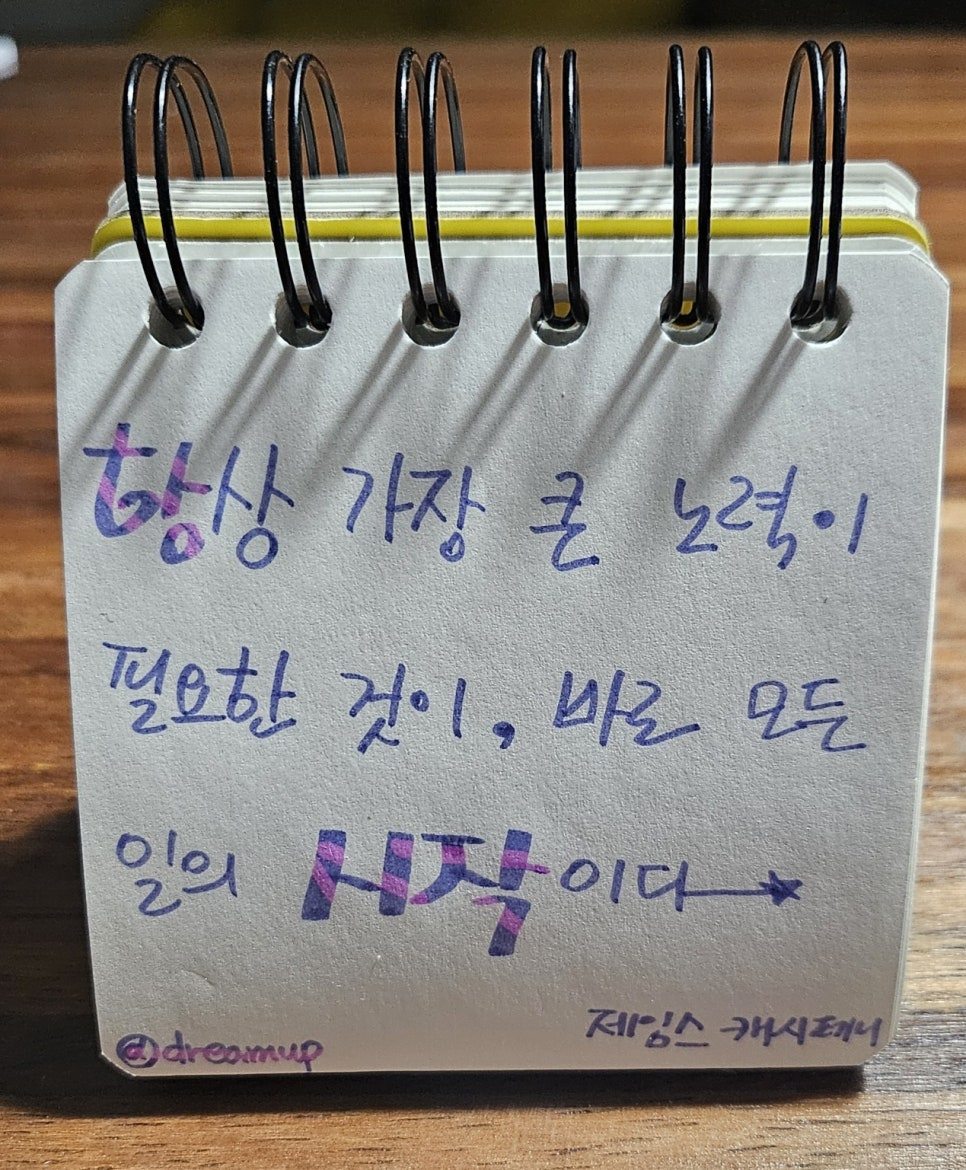 항상 가장 큰 노력이
필요한 것이, 바로 모든
일의 시작이다
@dreamup
제임스 캐시패니